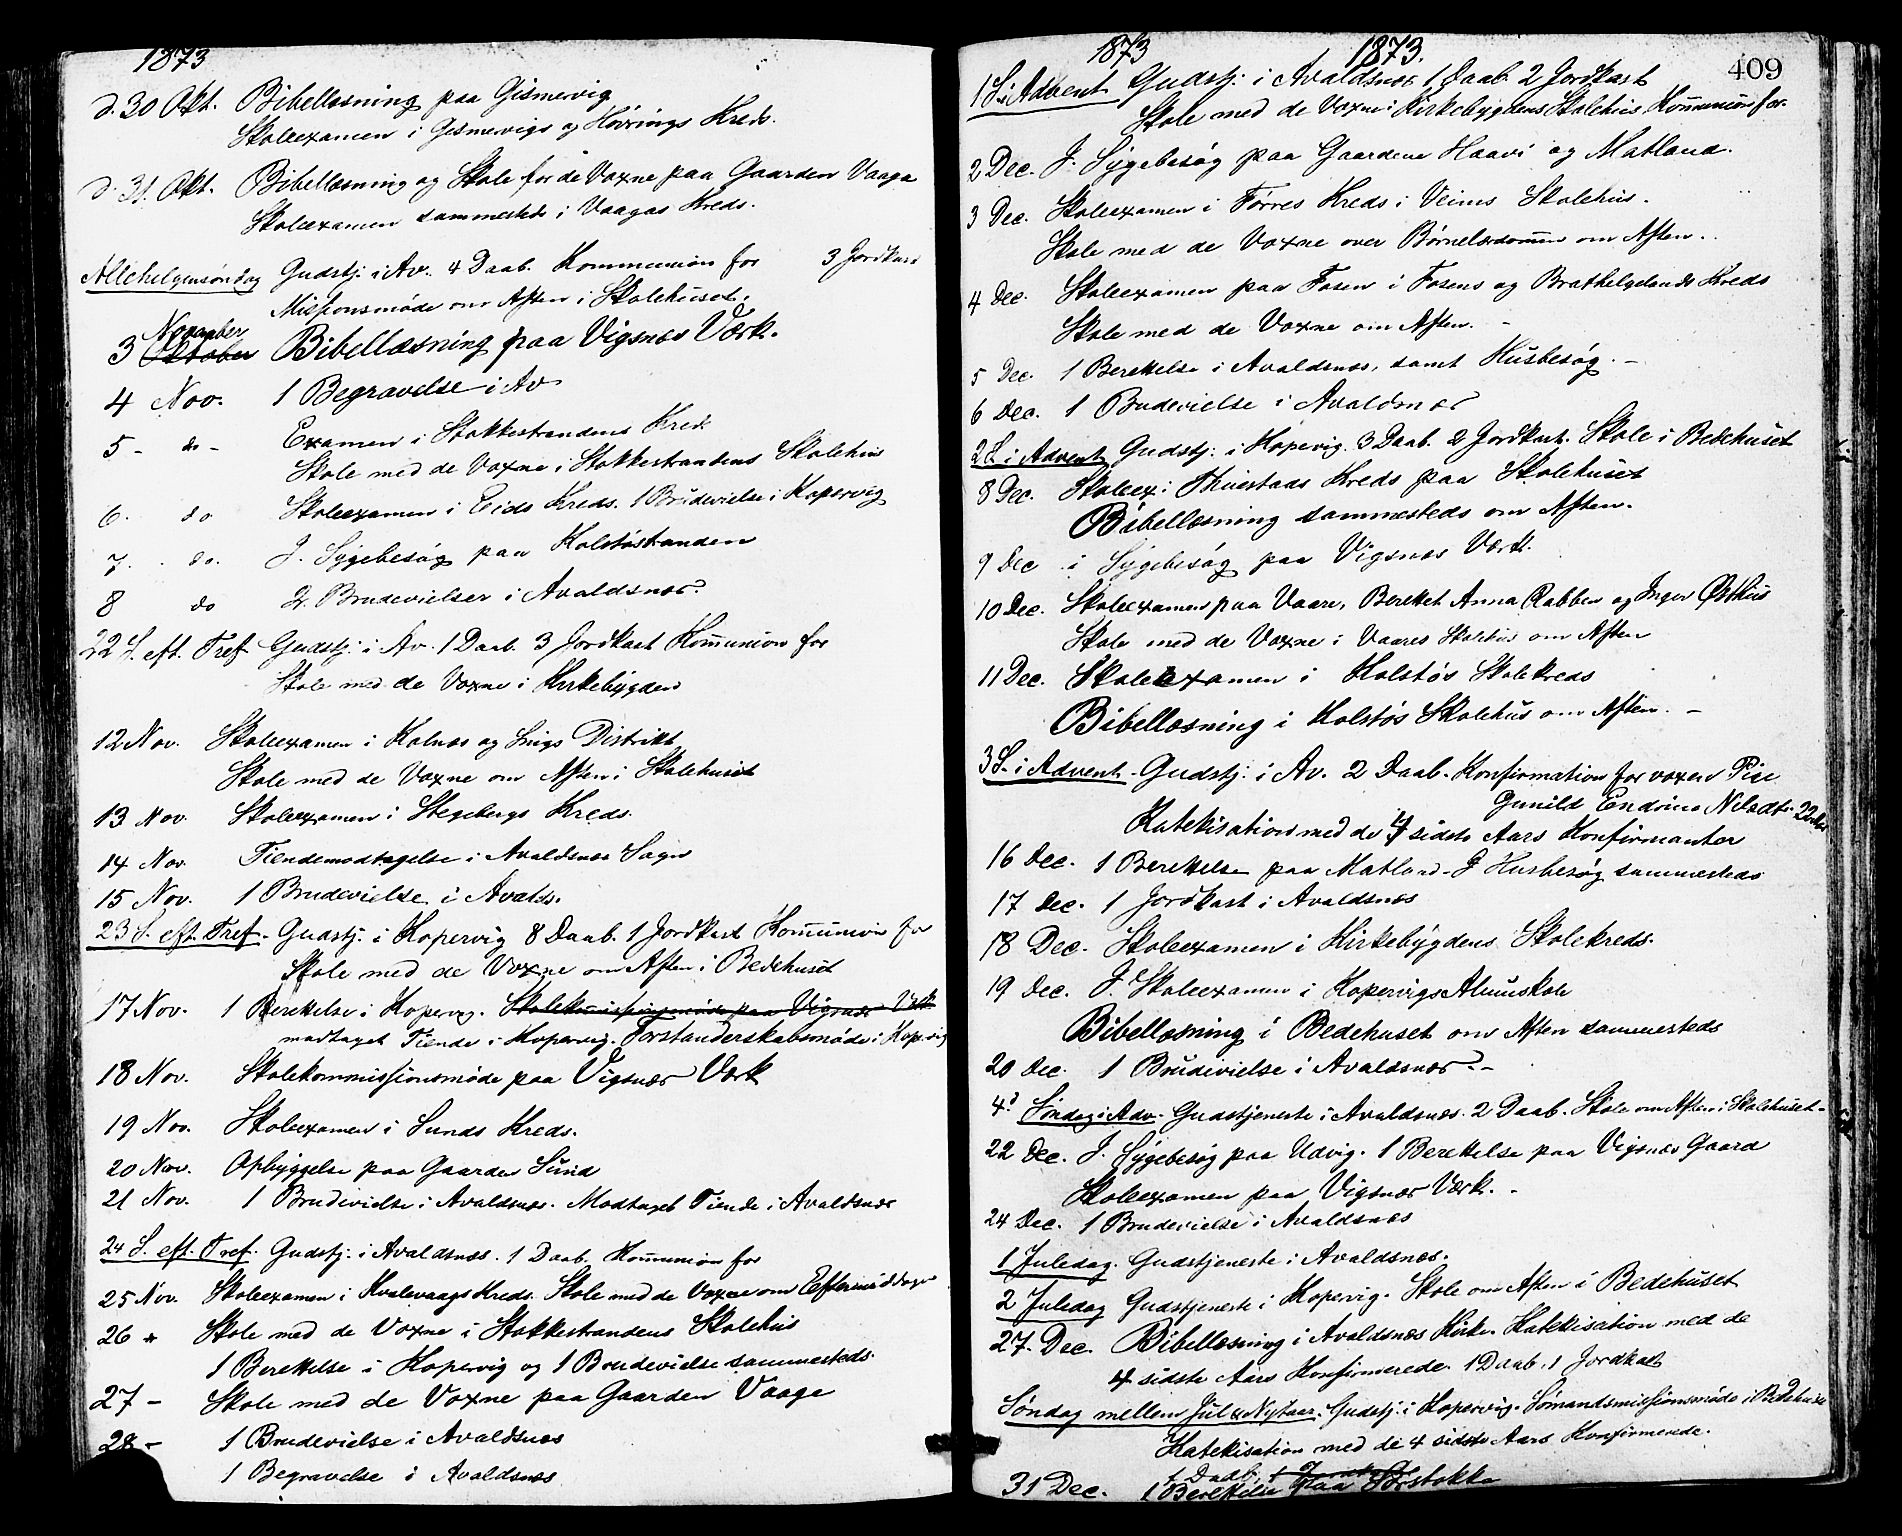 1873
d. 30 Okt. Bibellæsning paa Gismervig
Skoleexamen i Gismervigs og Høvrings Kreds.
d. 31. Okt. Bibellæsning og Skole for de Voxne paa Gaarden Vaage
Skoleexamen sammesteds i Vaages Kreds.
Allehelgensøndag Gudstj. i Av. 4 Daab. Kommunion for 3 Jordkast
Missionsmøde om Aften i Skolehuset.
November
3 Oktober Bibellæsning paa Vigsnæs Værk.
4 Nov. 1 Begravelse i Av
5 - do - Examen i Stokkestrandens Kreds
Skole med de Voxne i Stokkestrandens Skolehus
6. do Skoleexamen i Eids Kreds. 1 Brudevielse i Kopervig
7. do. J. Sygebesøg paa Kolstøstranden
8 do 2 Brudevielser i Avaldsnæs.
22 S. eft. Tref. Gudstj. i Av. 1 Daab. 3 Jordkast Kommunion for
Skole med de Voxne i Kirkebygden
12 Nov. Skoleexamen i Kolnæs og Snigs Distrikt
Skole med de Voxne om Aften i Skolehuset
13 Nov. Skoleexamen i Stegebergs Kreds.
14 Nov. Tiendemodtagelse i Avaldsnæs Sogn
15 Nov. 1 Brudevielse i Avalds.
23 S. eft. Tref. Gudstj. i Kopervig 8 Daab. 1 Jordkast Kommunion for
Skole med de Voxne om Aften i Bedehuset
17 Nov. 1 Berettelse i Kopervig. Skolekommissionsmøde paa Vigsnæs Værk
modtaget Tiende i Kopervig. Forstanderskabsmøde i Kopervig
18 Nov. Skolekommissionsmøde paa Vigsnæs Værk
19 Nov. Skoleexamen i Sunds Kreds.
20 Nov. Opbyggelse paa Gaarden Sund
21 Nov. 1 Brudevielse i Avaldsnæs. Modtaget Tiende i Avaldsnæs
24 S. eft. Tref. Gudstj. i Avaldsnæs. 1 Daab. Kommunion for
25 Nov. Skoleexamen i Kvalevaags Kreds. Skole med de Voxne om Eftermiddagen
26 " Skole med de Voxne i Stokkestrandens Skolehus
1 Berettelse i Kopervig og 1 Brudevielse sammesteds.
27 - Skole med de Voxne paa Gaarden Vaage
28 - 1 Brudevielse i Avaldsnæs
1 Begravelse i Avaldsnæs
1873 1873. 409
1 S. i Advent Gudstj. i Avaldsnæs 1 Daab 2 Jordkast
Skole med de Voxne i Kirkebygdens Skolehus Kommunion for
2 Dec. J. Sygebesøg paa Gaardene Haavi og Matland.
3 Dec. Skoleexamen i Førres Kreds i Veims Skolehus.
Skole med de Voxne over Børnelærdommen om Aften.
4 Dec. Skoleexamen paa Fosen i Fosens og Brathelgelands Kreds
Skole med de Voxne om Aften. -
5 Dec 1 Berettelse i Avaldsnæs, samt Husbesøg. -
6 Dec. 1 Brudevielse i Avaldsnæs
2 S. i Advent Gudstj. i Kopervig. 3 Daab. 2 Jordkast. Skole i Bedehuset
8 Dec. Skoleex. i Thuestads Kreds paa Skolehuset
Bibellæsning sammesteds om Aften.
9 Dec i Sygebesøg paa Vigsnæs Værk.
10 Dec. Skoleexamen paa Vaare, Berettet Anna Rabben og Inger Østhus
Skole med de Voxne i Vaares Skolehus om Aften
11 Dec. Skoleexamen i Kolstøs Skolekreds
Bibellæsning i Kolstøs Skolehus om Aften. -
3 S. i Advent. Gudstj. i Av. 2 Daab. Konfirmation for voxen Pige
Gunild Endine Nilsdtr 22
Katekisation med de 4 sidste Aars Konfirmanter
16 Dec. 1 Berettelse paa Matland. J Husbesøg sammesteds
17 Dec. 1 Jordkast i Avaldsnæs
18 Dec. Skoleexamen i Kirkebygdens Skolekreds.
19 Dec. J. Skoleexamen i Kopervigs Almuskole
Bibellæsning i Bedehuset om Aften sammesteds
20 Dec. 1 Brudevielse i Avaldsnæs. -
4d Søndag i Adv. Gudstjeneste i Avaldsnæs. 2 Daab. Skole om Aften i Skolehuset -
22 Dec. J. Sygebesøg paa Udvig. 1 Berettelse paa Vigsnæs Gaard
Skoleexamen paa Vigsnæs Værk. -
24 Dec. 1 Brudevielse i Avaldsnæs
1 Juledag. Gudstjeneste i Avaldsnæs.
2 Juledag Gudstjeneste i Kopervig. Skole om Aften i Bedehuset
27. Dec. Bibellæsning i Avaldsnæs Kirke. Katekisation med de
4 sidste Aars Konfirmerede. 1 Daab, 1 Jordkast
Søndag mellem Jul & Nytaar. Gudstj. i Kopervig. Sømandsmissionsmøde i Bedehuset
Katekisation med de 4 sidste Aars Konfirmerede.
1 Daab, 1 Jordkast
31 Dec. 1 Berettelse paa Sørstokke